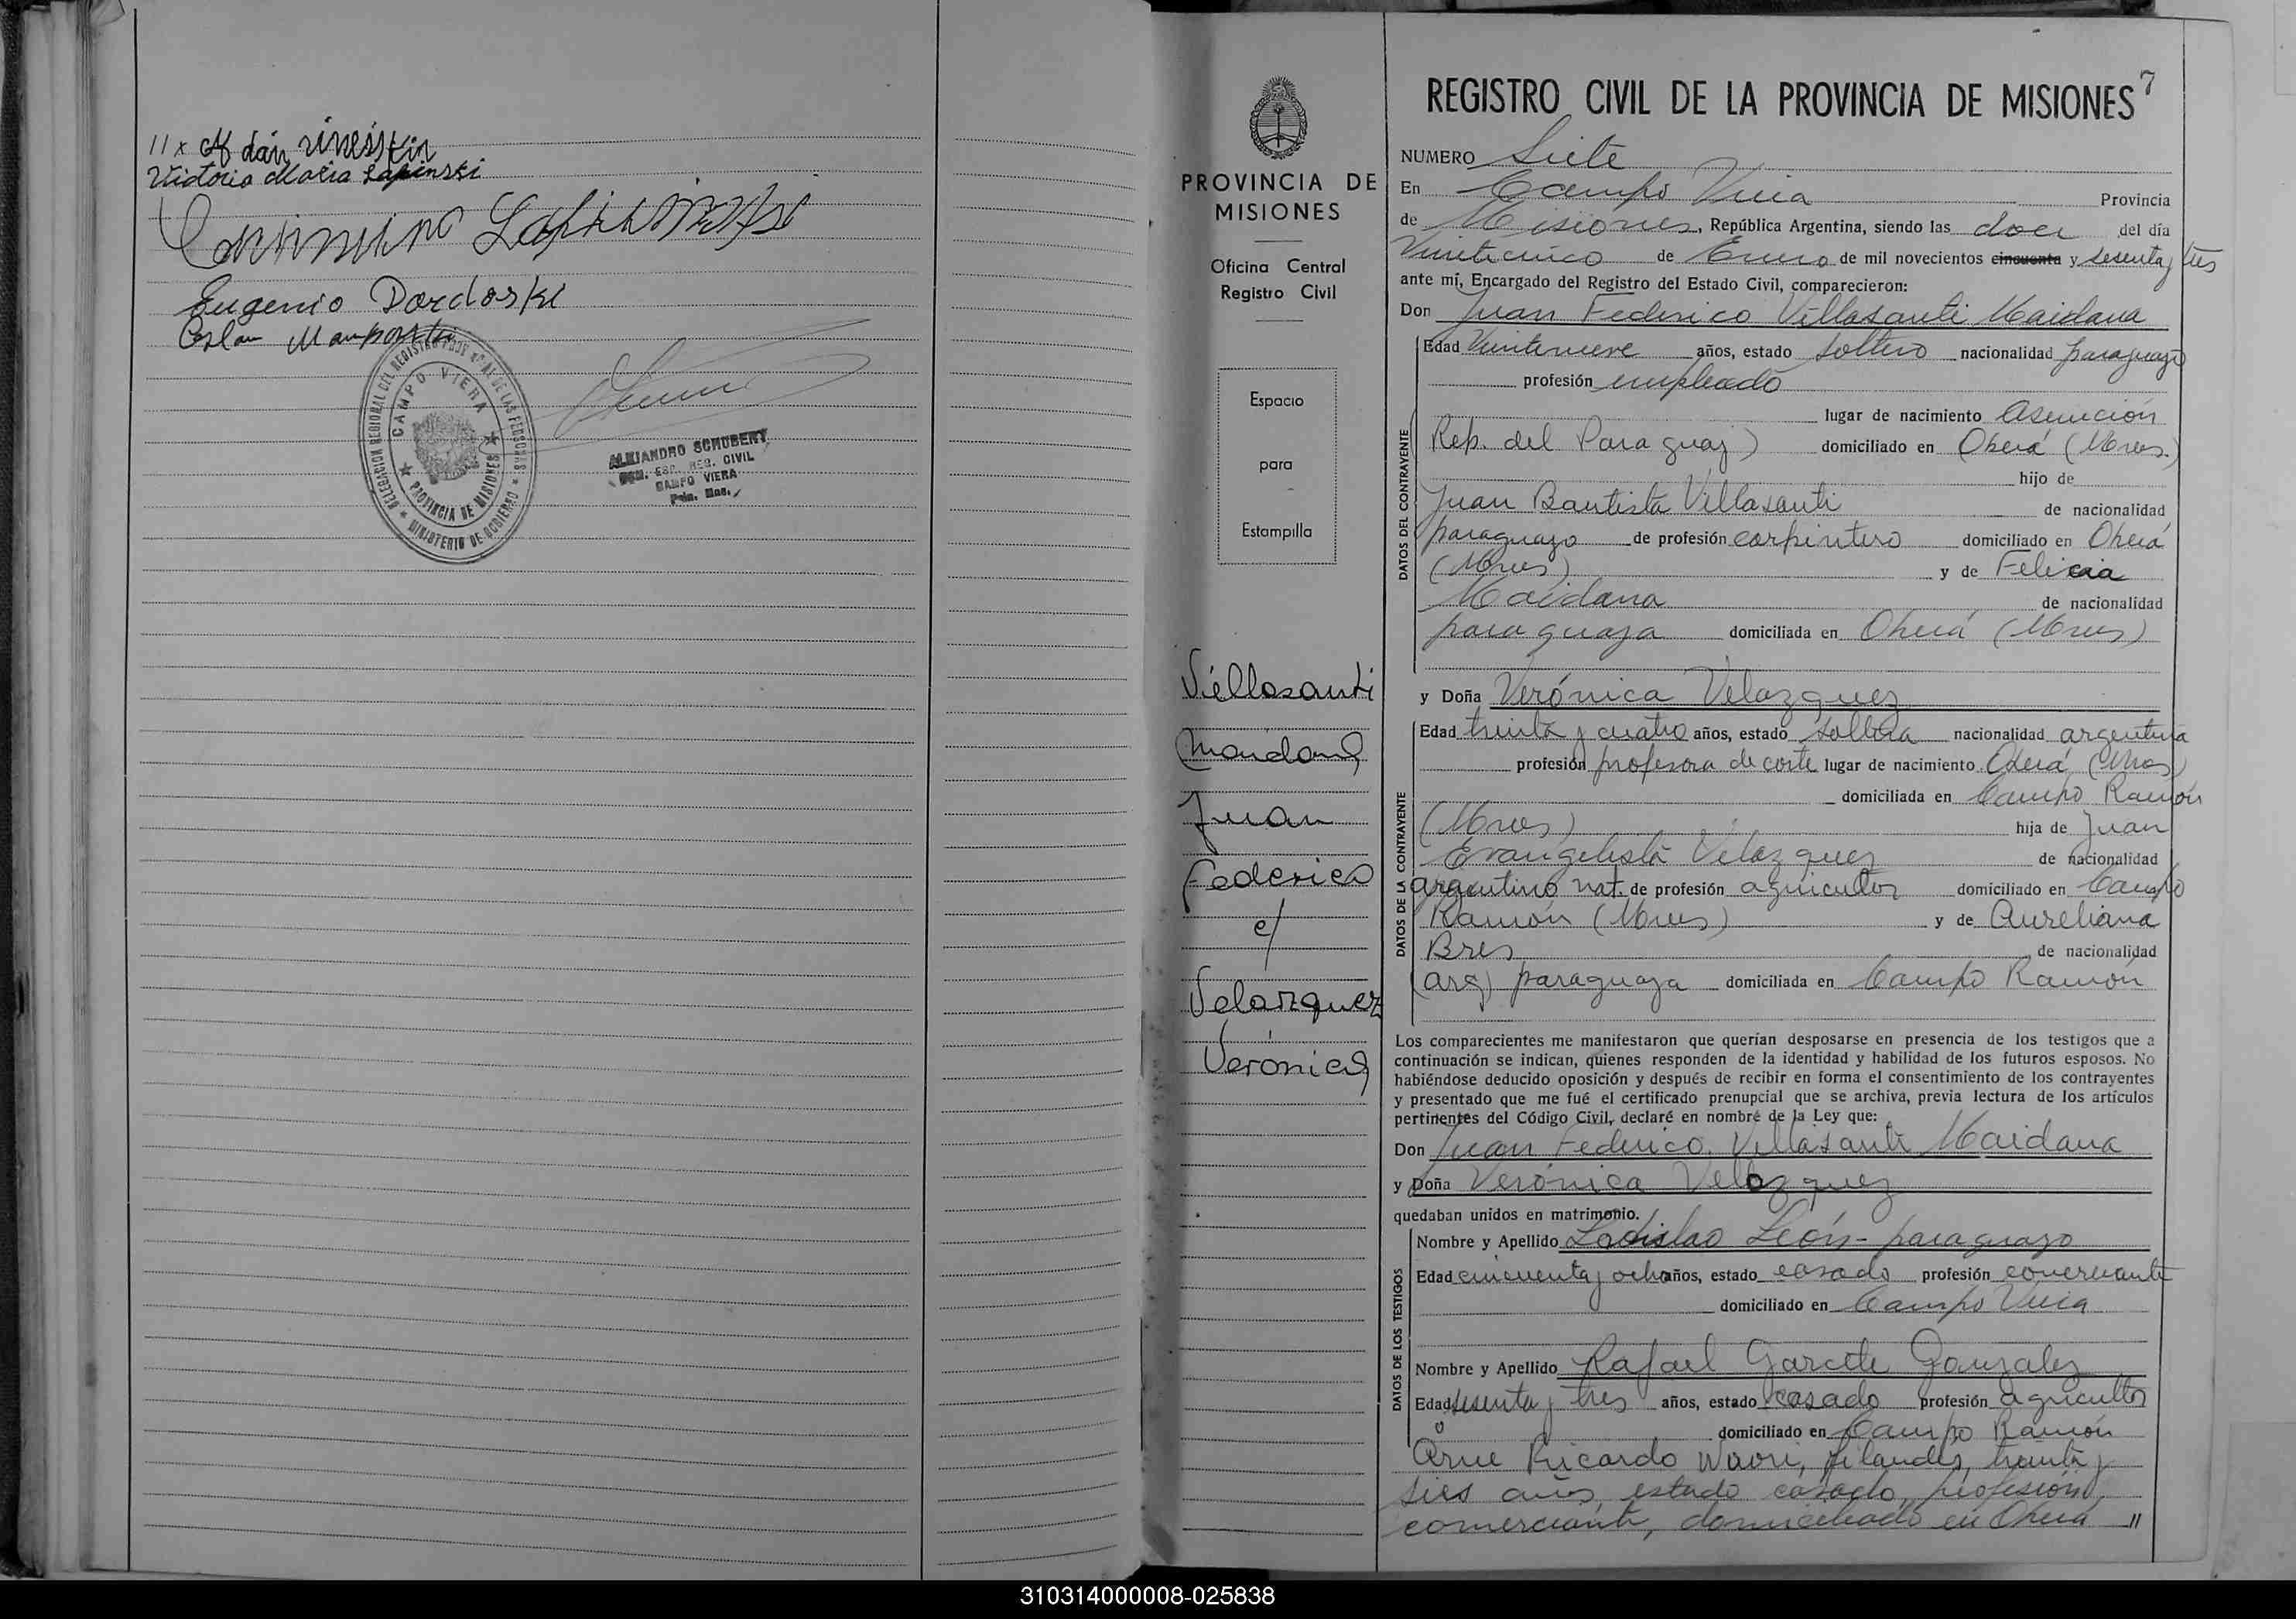 Victoria Maria Lapinski
Eugenio Dordoski
DELEGACION REGIONAL DEL REGISTRO DE LAS PERSONAS
MINISTERIO DE GOBIERNO
CAMPO VIERA
PROVINCIA DE MISIONES
ALEJANDRO SCHUBERT
REG. CIVIL
CAMPO VIERA
PROVINCIA DE
MISIONES
Oficina Central
Registro Civil
Espacio
para
Estampilla
Villasanti
Maidana
Juan
Federico
c/
Velazquez
Verónica
7
REGISTRO CIVIL DE LA PROVINCIA DE MISIONES
NUMERO Siete
En Campo Viera Provincia
de Misiones, República Argentina, siendo las doce del día
Veinticinco de Enero de mil novecientos cincuenta y sesenta y tres
ante mí, Encargado del Registro del Estado Civil, comparecieron:
Don Juan Federico Villasanti Maidana
Edad Veintinueve años, estado soltero nacionalidad paraguayo
profesión empleado
lugar de nacimiento Asunción
Rep. del Paraguay) domiciliado en Oberá (Mnes.)
hijo de
Juan Bautista Villasanti de nacionalidad
paraguayo de profesión carpintero domiciliado en Oberá
(Mnes) y de Felicia
Maidana de nacionalidad
paraguaya domiciliada en Oberá (Mnes)
y Doña Verónica Velazquez
Edad treinta y cuatro años, estado soltera nacionalidad argentina
profesión profesora de corte lugar de nacimiento Oberá (Mnes)
domiciliada en Campo Ramón
(Mnes) hija de Juan
Evangelista Velazquez de nacionalidad
argentino nat. de profesión agricultor domiciliado en Campo
Ramón (Mnes) y de Aureliana
Bres de nacionalidad
(arg) paraguaya domiciliada en Campo Ramón
Los comparecientes me manifestaron que querían desposarse en presencia de los testigos que a
continuación se indican, quienes responden de la identidad y habilidad de los futuros esposos. No
habiéndose deducido oposición y después de recibir en forma el consentimiento de los contrayentes
y presentado que me fué el certificado prenupcial que se archiva, previa lectura de los artículos
pertinentes del Código Civil, declaré en nombre de la Ley que:
Don Juan Federico Villasanti Maidana
y Doña Verónica Velazquez
quedaban unidos en matrimonio.
Nombre y Apellido Ladislao León - paraguayo
Edad cincuenta y ocho años, estado casado profesión comerciante
domiciliado en Campo Viera
Nombre y Apellido Rafael Garcete Gonzalez
Edad sesenta y tres años, estado casado profesión agricultor
domiciliado en Campo Ramón
Arne Ricardo Wuori, filandes, treinta y
seis años, estado casado, profesión
comerciante, domiciliado en Oberá //
DATOS DEL CONTRAYENTE
DATOS DE LA CONTRAYENTE
DATOS DE LOS TESTIGOS
310314000008-025838